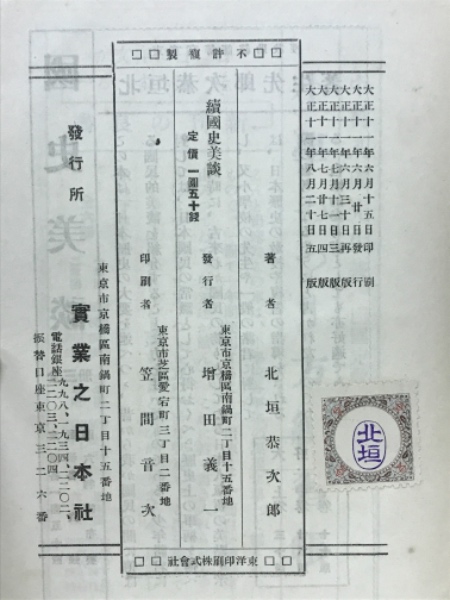 大正十一年六月十五日印刷
大正十一年六月廿日發行
大正十一年六月三十日再版
大正十一年七月十一日三版
大正十一年七月廿七日四版
大正十一年八月二十日五版
不許複製
續國史美談
定價一圓五十錢
著者 北垣恭次郎
東京市京橋區南鍋町二丁目十五番地
發行者 增田義一
東京市芝區愛宕町三丁目二番地
印刷者 笠間音次
東洋印刷株式會社
東京市京橋區南鍋町二丁目十五番地
發行所 實業之日本社
電話銀座
振替口座東京三二六番
北垣